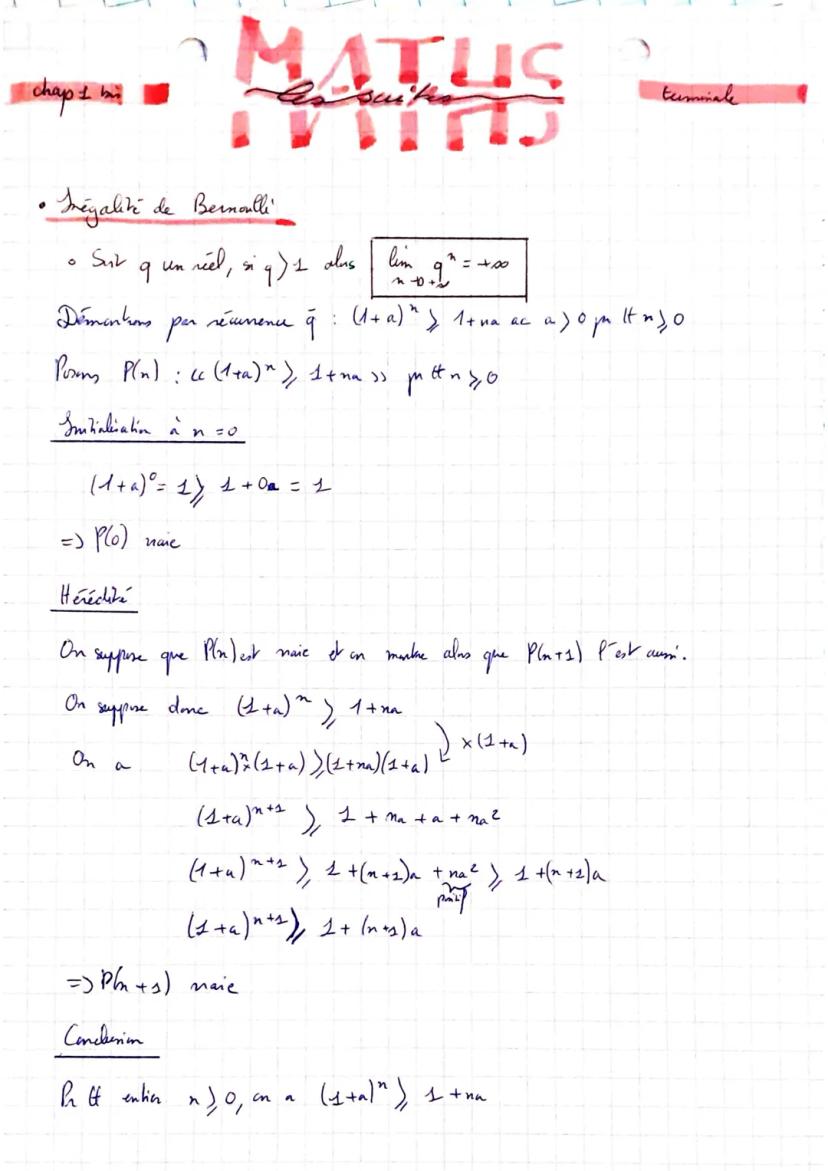 MATHS
chap 1 bis
les suites
terminale
• Inégalité de Bernoulli
∘ Soit q un réel, si q > 1 alors lim qⁿ = +∞
n→+∞
Démontrons par récurrence q̄ : (1+a)ⁿ ⩾ 1+na ac a > 0 pr tt n ⩾ 0
Posons P(n) : « (1+a)ⁿ ⩾ 1+na » pr tt n ⩾ 0
Initialisation à n = 0
(1+a)⁰ = 1 ⩾ 1 + 0a = 1
=> P(0) vraie
Hérédité
On suppose que P(n) est vraie et on montre alors que P(n+1) l'est aussi.
On suppose donc (1+a)ⁿ ⩾ 1+na
On a (1+a)ⁿ×(1+a) ⩾ (1+na)(1+a) ×(1+a)
(1+a)ⁿ⁺¹ ⩾ 1 + na + a + na²
(1+a)ⁿ⁺¹ ⩾ 1 + (n+1)a + na² ⩾ 1 + (n+1)a
positif
(1+a)ⁿ⁺¹ ⩾ 1 + (n+1)a
=> P(n+1) vraie
Conclusion
Pr tt entier n ⩾ 0, on a (1+a)ⁿ ⩾ 1 + na